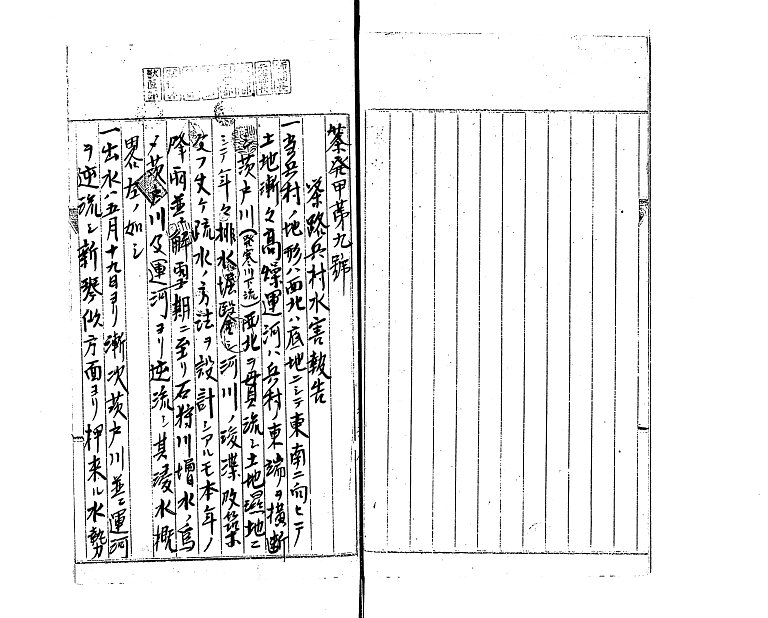 篆発甲第九號
篆路兵村水害報告
一当兵村ノ地形ハ西北ハ底地ニシテ東南ニ向ヒテ
土地漸々高燥運河ハ兵村東端ヲ横断
シ茨戸川(発寒川下流)西北ヲ貫流シ土地濕地ニ
シテ年々排水堀鑿シ河川ノ浚渫改築
及フ丈ケ疏水ノ方法ヲ設計シアルモ本年ノ
降雨並ニ解雪期ニ至リ石狩川増水ノ為
メ茨戸川及運河ヨリ逆流シ其浸水概
畧左ノ如シ
一出水ハ五月十九日ヨリ漸次茨戸川並ニ運河
ヲ逆流シ新琴似方面ヨリ押来ル水勢